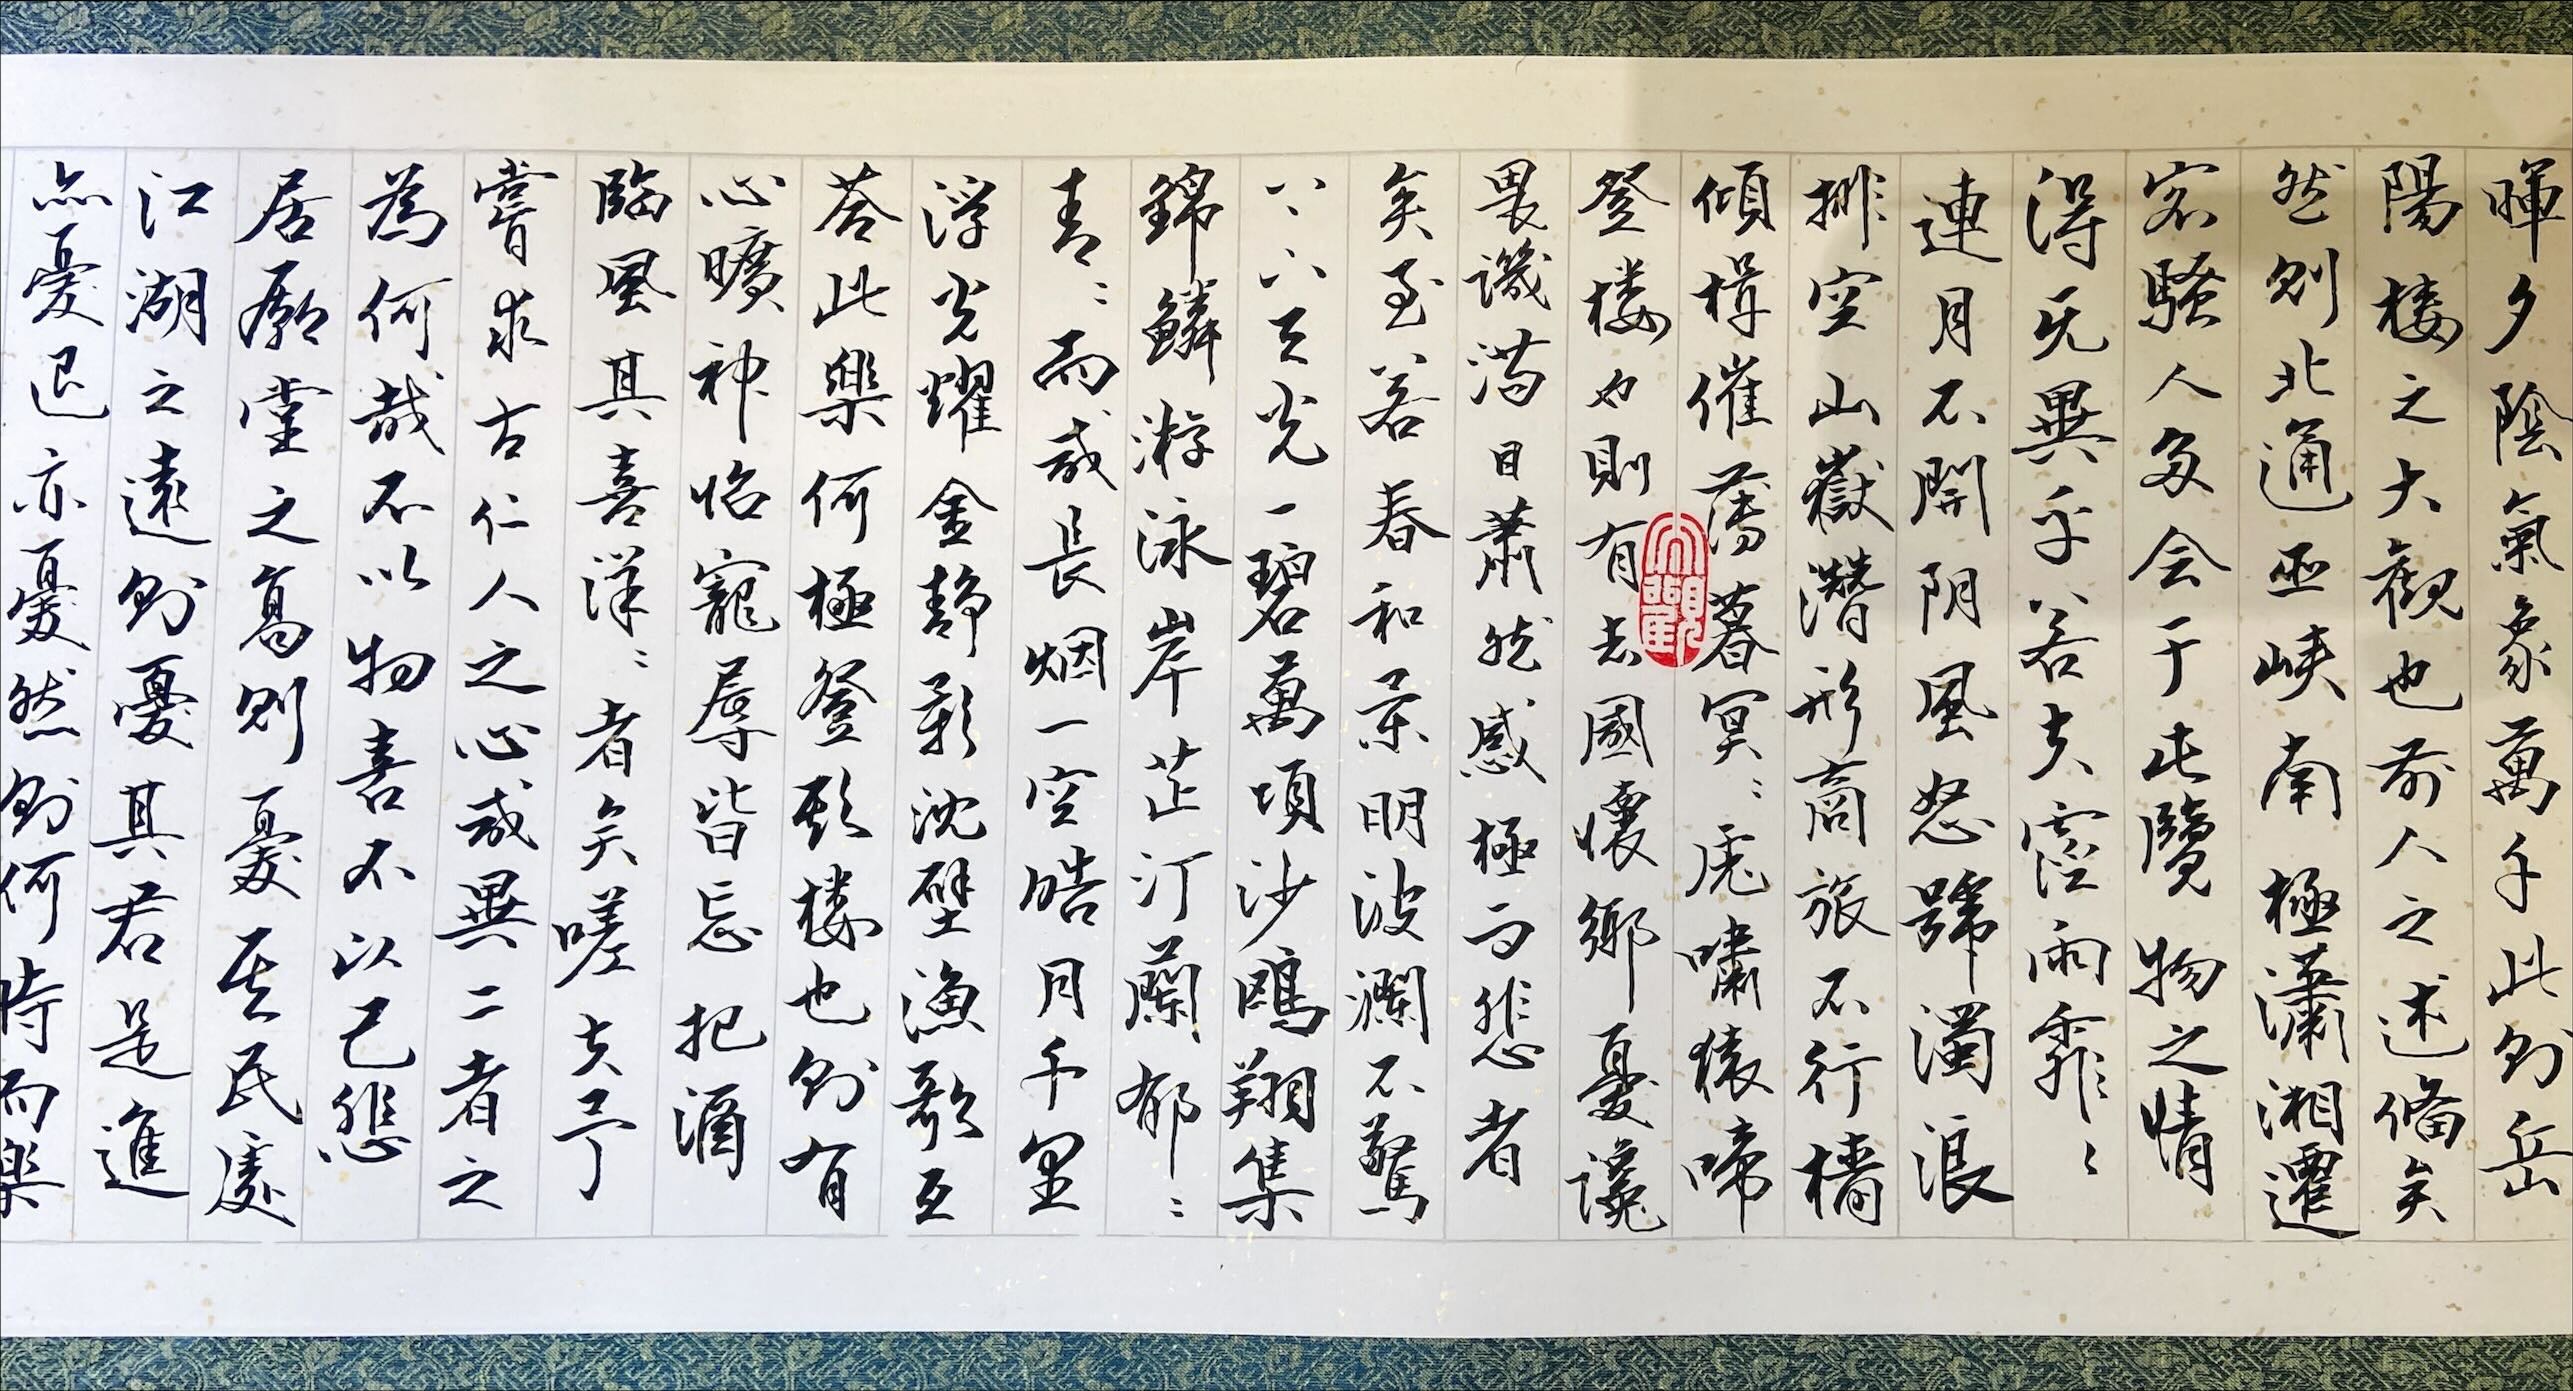 暉夕陰氣象萬千此則岳
陽楼之大觀也前人之述備矣
然則北通巫峽南極瀟湘遷
客騷人多会于此覽物之情
得无異乎若夫霪雨霏〻
連月不開阴風怒號濁浪
排空山嶽潛形商旅不行檣
傾楫催薄暮冥〻虎嘯猿啼
登楼也則有去國懷鄉憂讒
畏譏满目蕭然感極而悲者
矣至若春和景明波瀾不驚
上下天光一碧萬頃沙鷗翔集
錦鱗游泳岸芷汀蘭郁〻
青〻而或長烟一空皓月千里
浮光耀金静影沈璧漁歌互
荅此樂何極登斯楼也則有
心曠神怡寵辱皆忘把酒
臨風其喜洋〻者矣嗟夫予
嘗求古仁人之心或異二者之
為何哉不以物喜不以己悲
居廟堂之高則憂其民處
江湖之遠則憂其君是進
亦憂退亦憂然則何時而樂
大觀